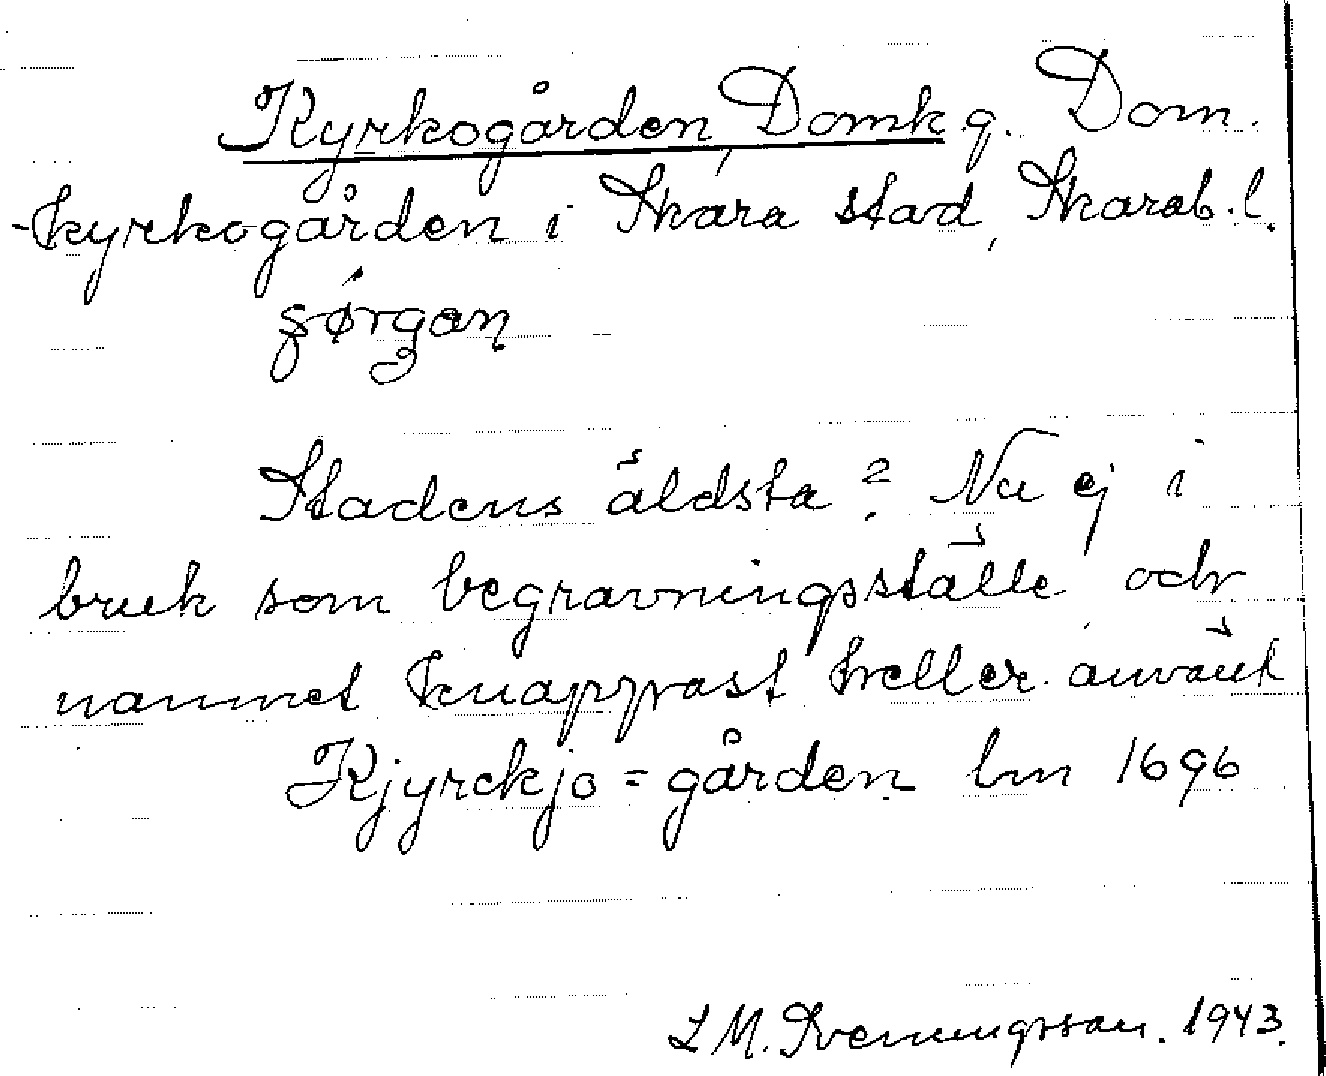 Kyrkogården, Domk.g. Dom-
-kyrkogården i Skara stad, Skarab.l.
ȿø̀rgan
Stadens äldsta? Nu ej i
bruk som begravningsställe och
namnet knappast heller använt
Kjyrckjo=gården lm 1696
L M. Sveningsson. 1943.